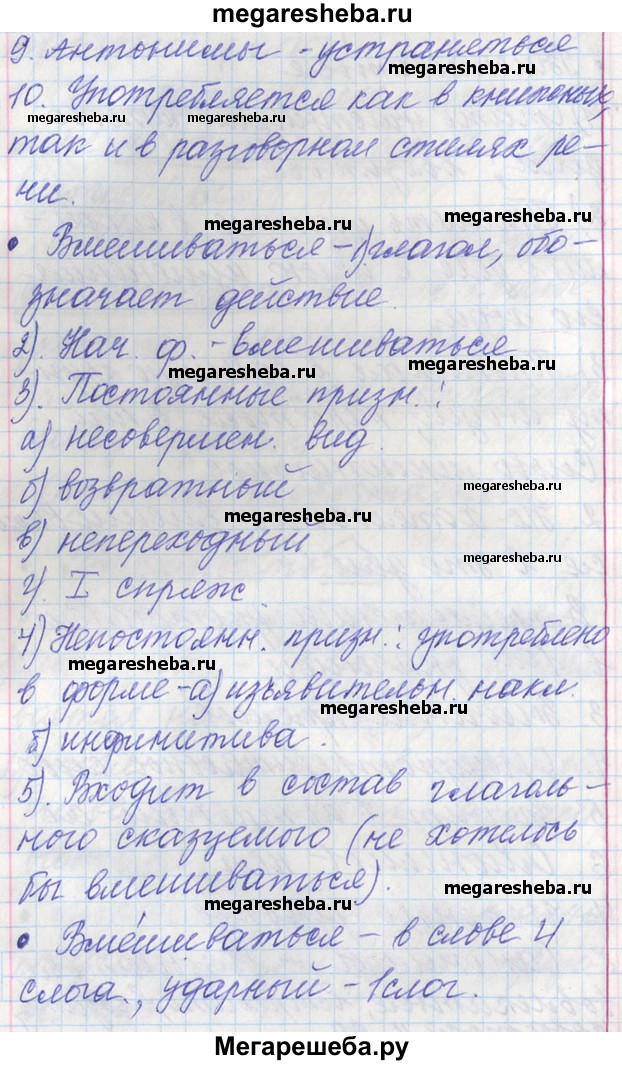 megaresheba.ru
9. Антонимы - устраняться
megaresheba.ru
10. Употребляется как в книжных,
megaresheba.ru megaresheba.ru
так и в разговорном стилях ре-
чи.
megaresheba.ru megaresheba.ru
• Вмешиваться - 1) глагол, обо-
значает действие.
2). Нач. ф. - вмешиваться
megaresheba.ru megaresheba.ru
3). Постоянные призн.:
а) несовершен. вид.
б) возвратный
megaresheba.ru
megaresheba.ru
в) непереходный
megaresheba.ru
г) I спряж.
4) Непостоянн. призн.: употреблено
megaresheba.ru
в форме - а) изъявительн. накл.
megaresheba.ru
б) инфинитива.
5). Входит в состав глаголь-
ного сказуемого (не хотелось
бы вмешиваться).
megaresheba.ru megaresheba.ru
• Вме́шиваться - в слове 4
слога., ударный - 1 слог.
Мегарешеба.ру